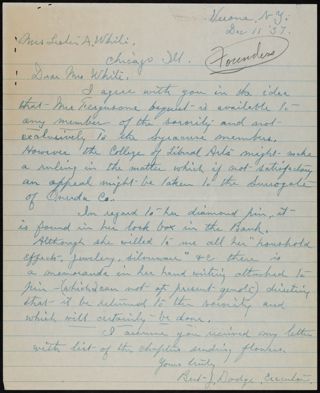 Verona, N.Y.
Dec 11 '37.
Mrs Leslie A. White.
Chicago Ill.
Founders
Dear Mrs. White.
I agree with you in the idea
that Mrs Fergusons bequest is available to
any member of the sorority and not
exclusively to the Syracuse members.
However the College of Liberal Arts might make
a ruling in the matter which if not satisfactory
an appeal might be taken to the Surrogate
of Oneida Co.
In regard to her diamond pin, it
is found in her lock box in the Bank.
Although she willed to me all her "household
effects, jewelry, silverware" &c there is
a memoranda in her hand writing attached to
pin - (which I can not at present quote) directing
that it be returned to the sorority and
which will certainly be done.
I assume you received my letter
with list of the chapters sending flowers.
Yours truly
Bert J. Dodge, Executor